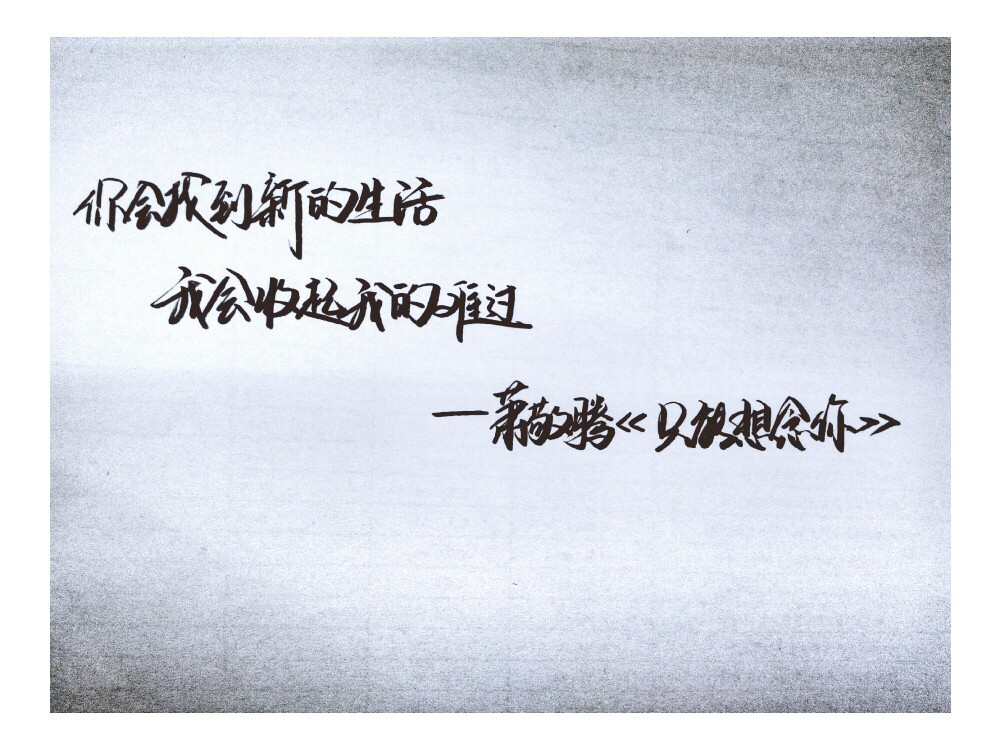 你会找到新的生活
我会收起我的难过
—萧敬腾《只能想念你》